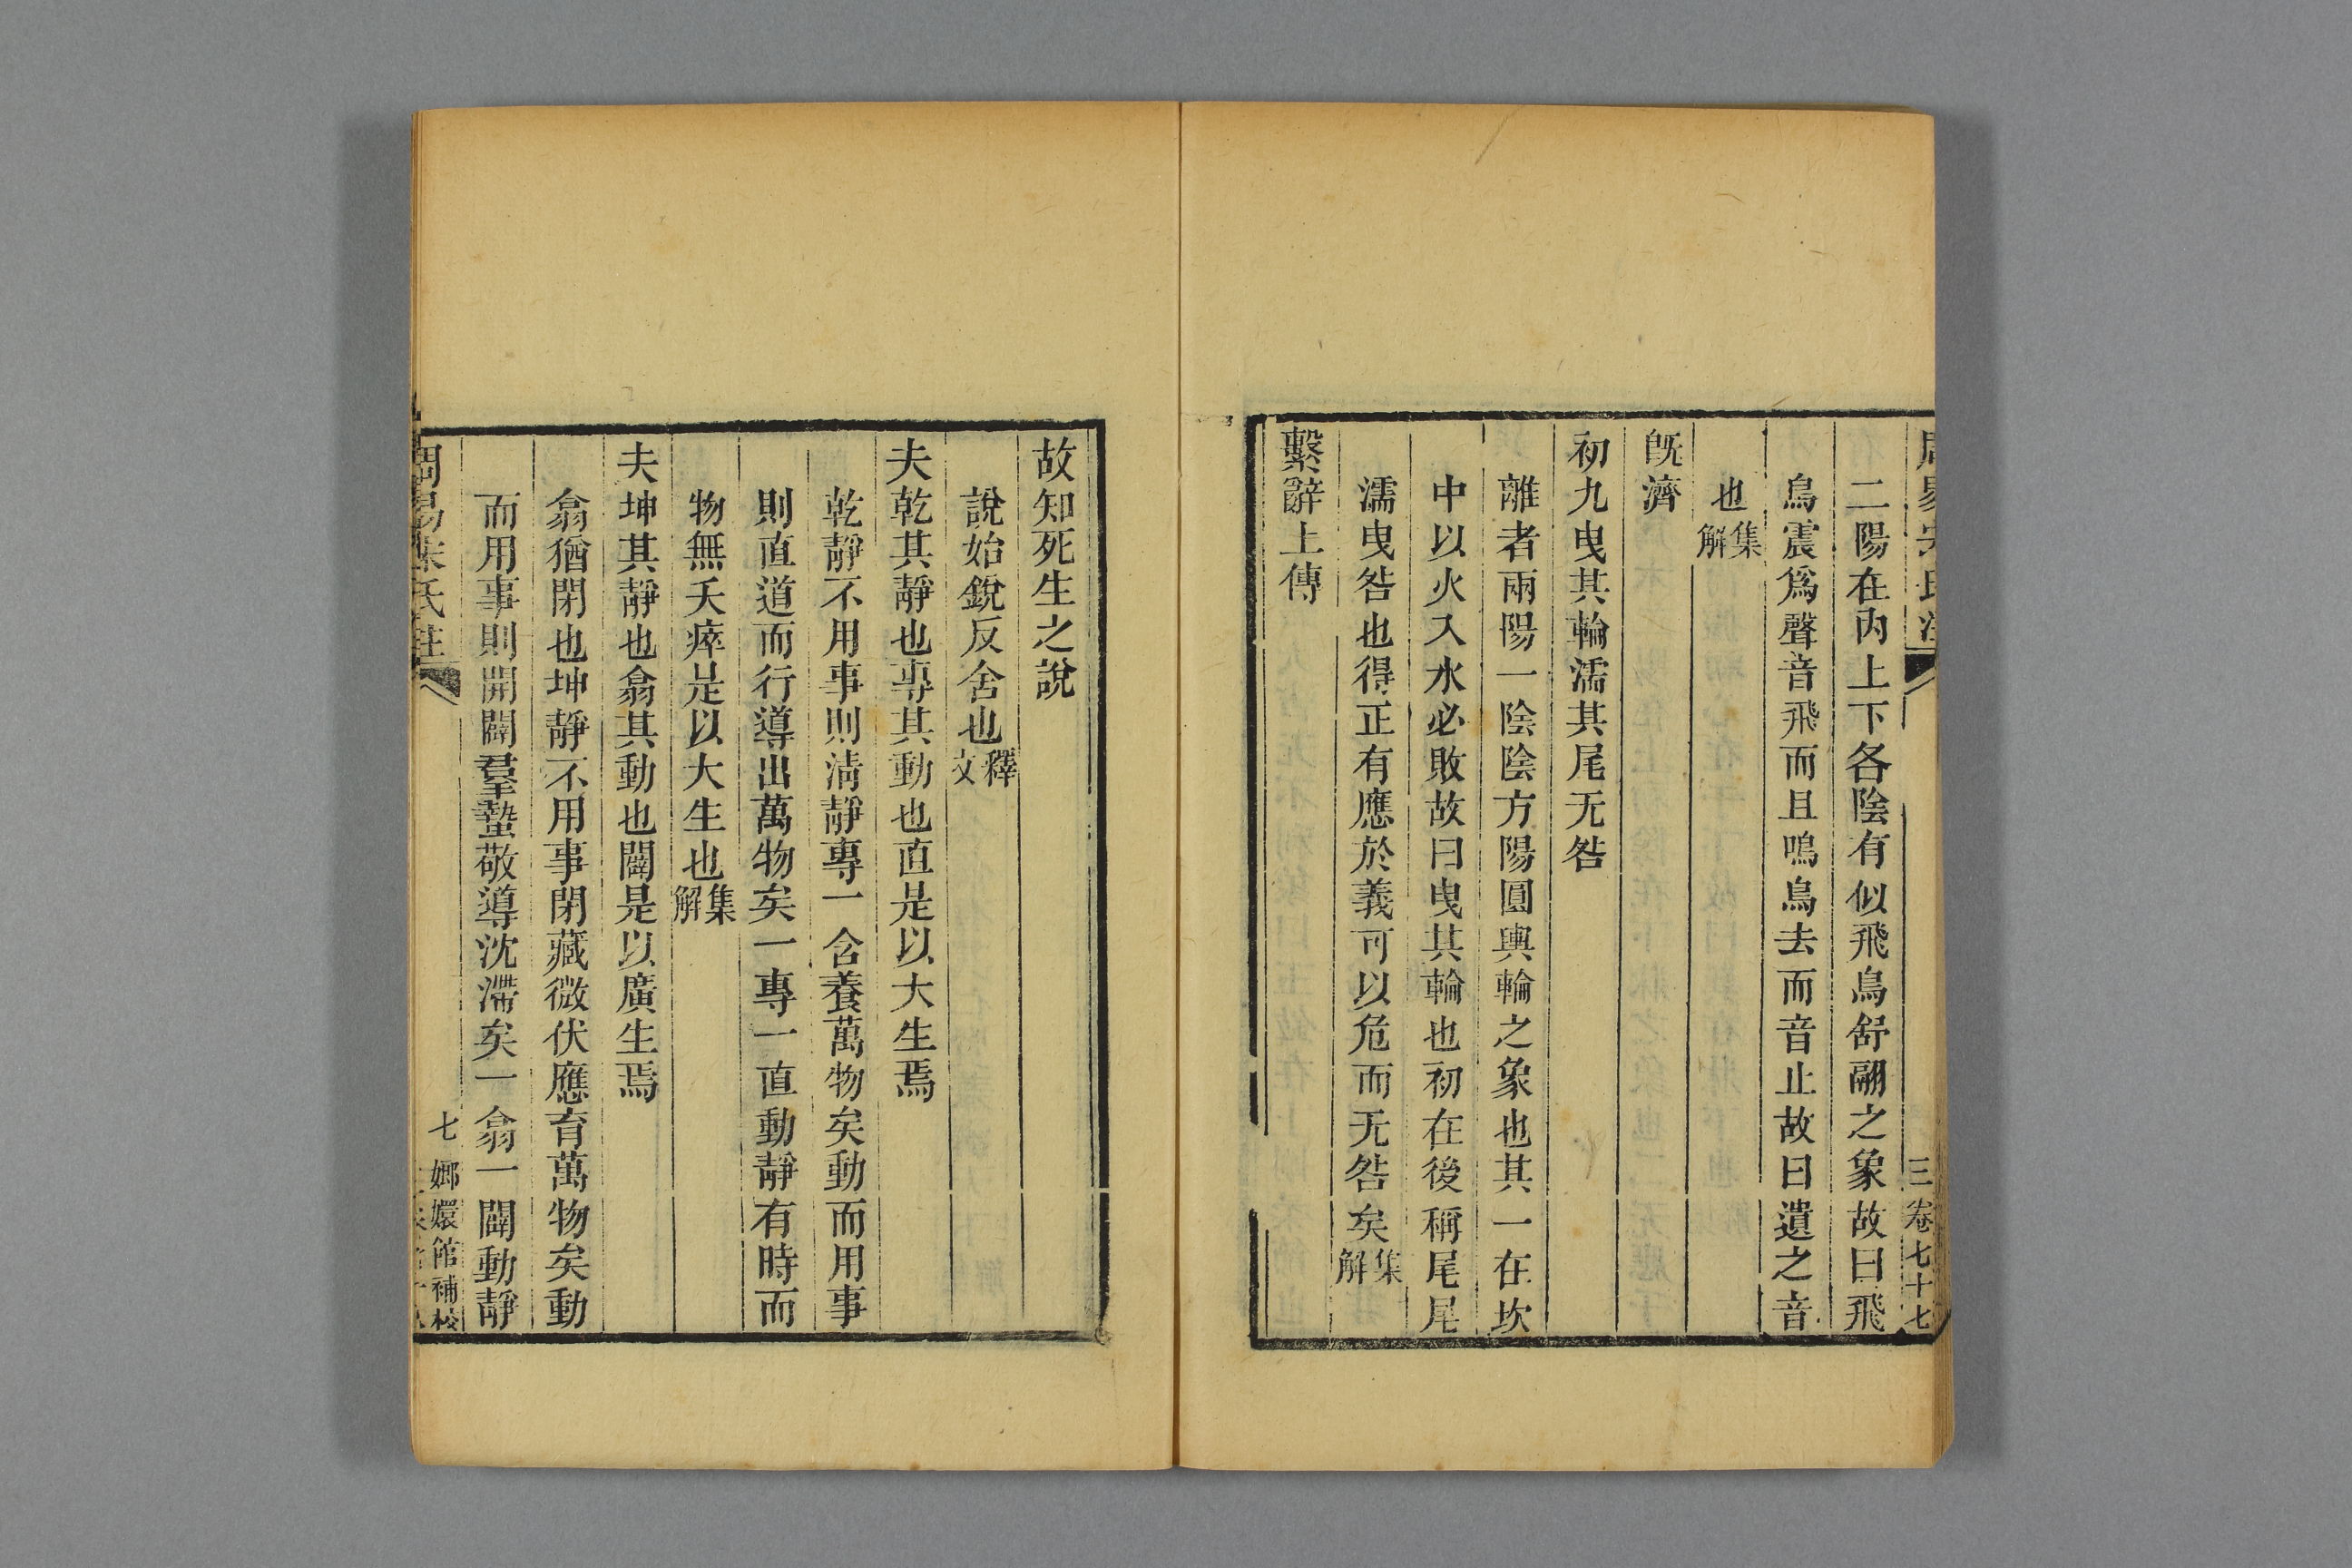 三 卷七十七
二陽在內上下各陰有似飛鳥舒翮之象故曰飛
鳥震爲聲音飛而且鳴鳥去而音止故曰遺之音
也集解
旣濟
初九曳其輪濡其尾无咎
離者兩陽一陰陰方陽圓輿輪之象也其一在坎
中以火入水必敗故曰曳其輪也初在後稱尾尾
濡曳咎也得正有應於義可以危而无咎矣集解
繫辭上傳
故知死生之說
說始銳反舍也釋文
夫乾其靜也專其動也直是以大生焉
乾靜不用事則淸靜專一含養萬物矣動而用事
則直道而行導出萬物矣一專一直動靜有時而
物無夭瘁是以大生也集解
夫坤其靜也翕其動也闢是以廣生焉
翕猶閉也坤靜不用事閉藏微伏應育萬物矣動
而用事則開闢羣蟄敬導沈滯矣一翕一闢動靜
七 嫏嬛館補校